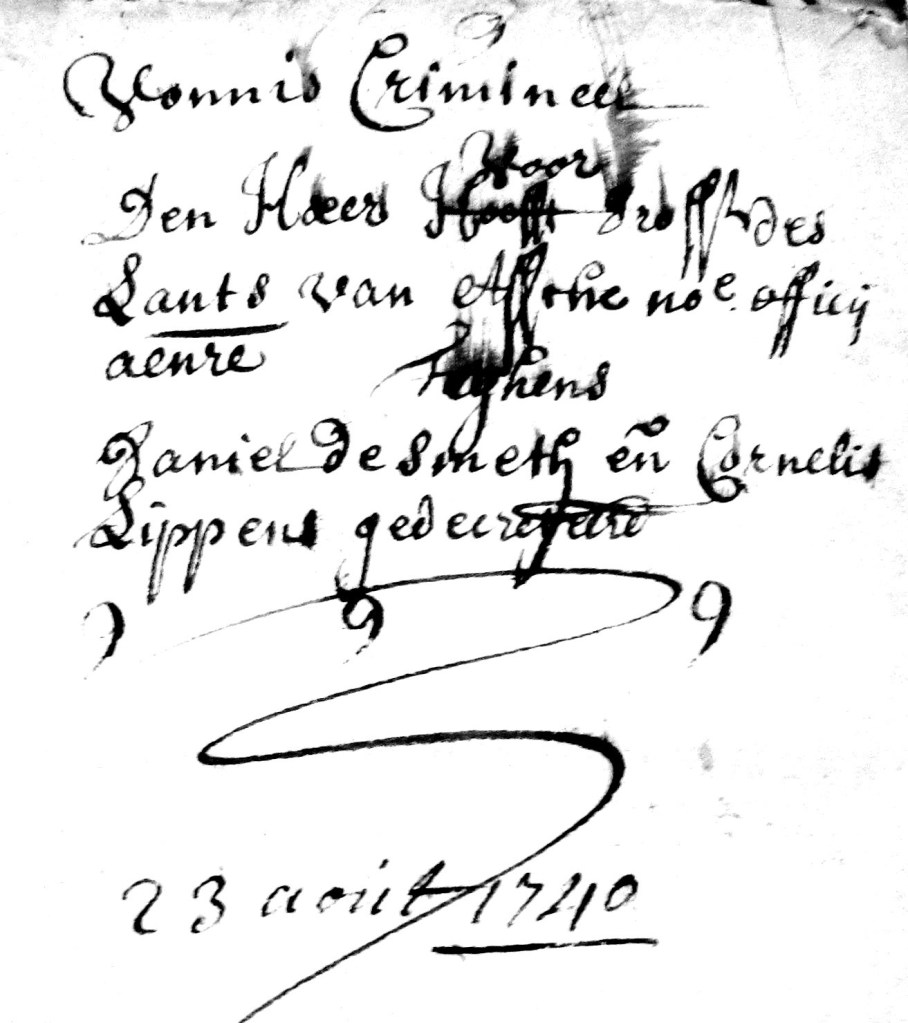 Vonnis Crimineel
Voor
Den Heere Hooft Drossdt des
Lants van Assche noe. officij
aenre
Teghens
Daniel de smeth en̄ Cornelis
Lippens gedecreteerd
23 aoüt 1740